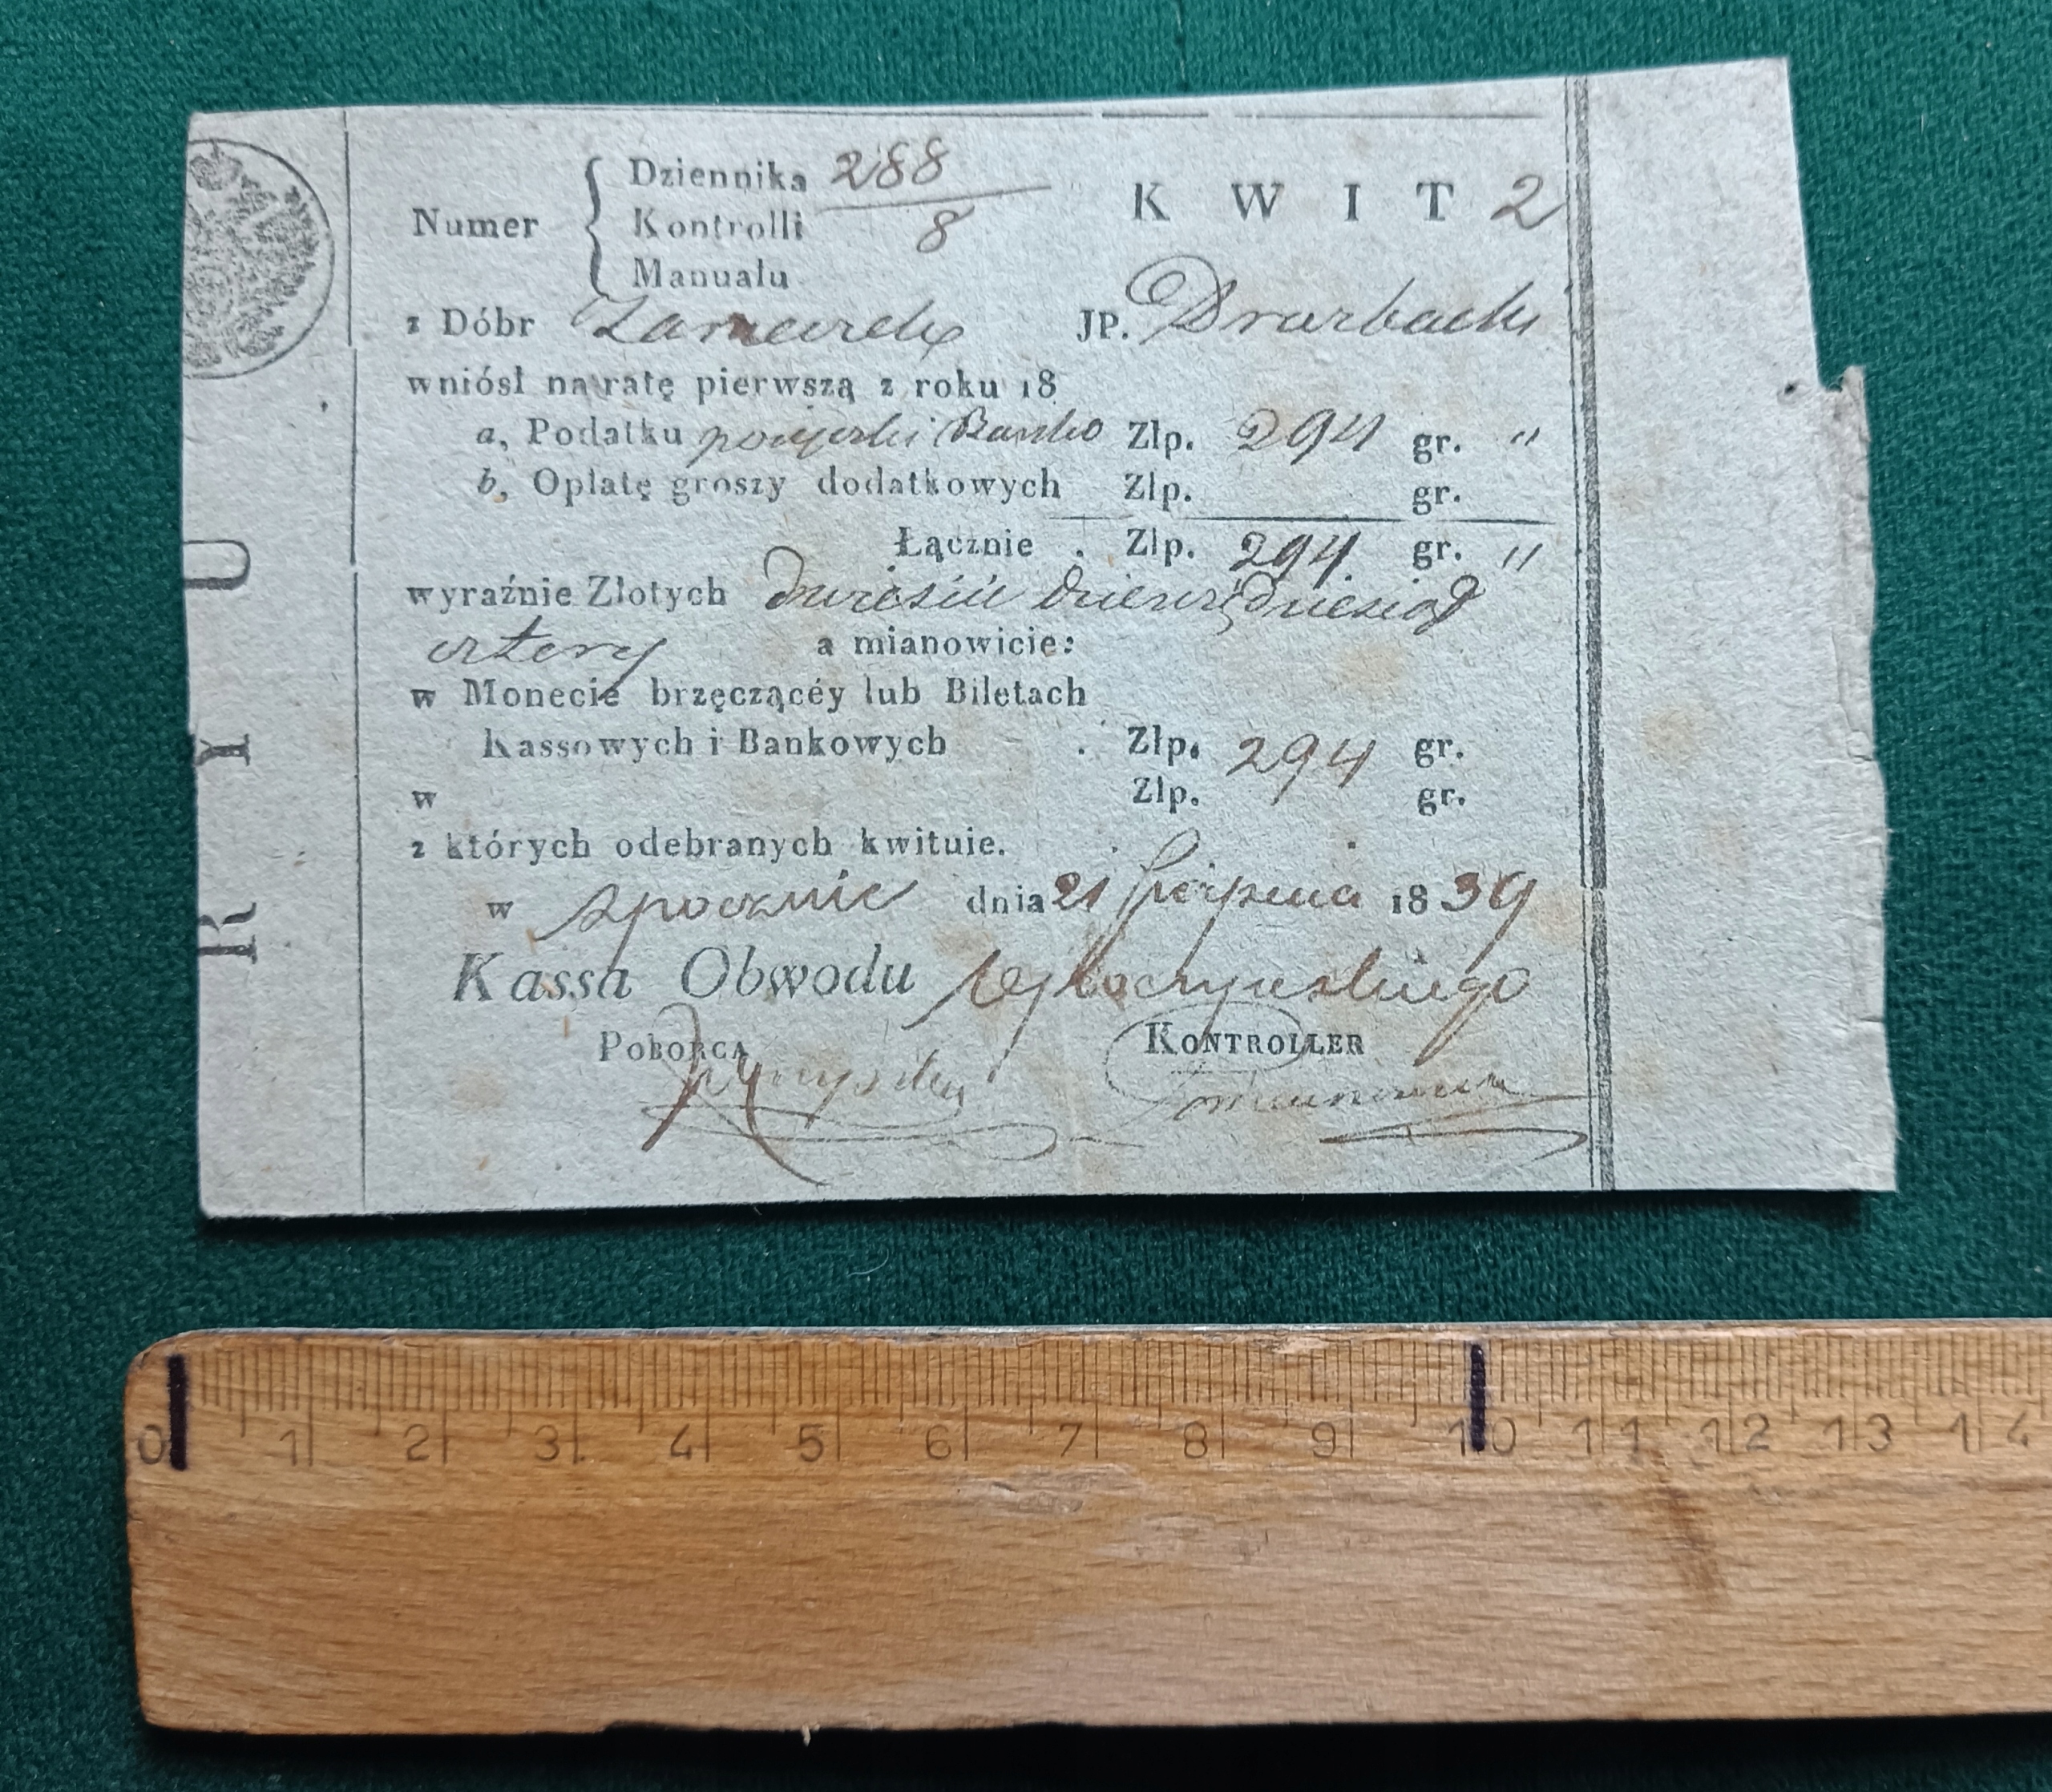 Numer
Dziennika 288
Kontrolli 8
Manuału
K W I T 2
z Dóbr JP.
wniósł na ratę pierwszą z roku 18
a, Podatku Złp. 294 gr. "
b, Opłatę groszy dodatkowych Złp. gr.
Łącznie . Złp. 294 gr. "
wyraźnie Złotych dwieście dziewięćdziesiąt
cztery a mianowicie:
w Monecie brzęczącéy lub Biletach
Kassowych i Bankowych . Złp. 294 gr.
w Złp. gr.
z których odebranych kwituie.
w Opocznie dnia 21 Sierpnia 1839
Kassa Obwodu Opoczyńskiego
POBORCA KONTROLLER
R Y U
0 1 2 3 4 5 6 7 8 9 10 11 12 13 14